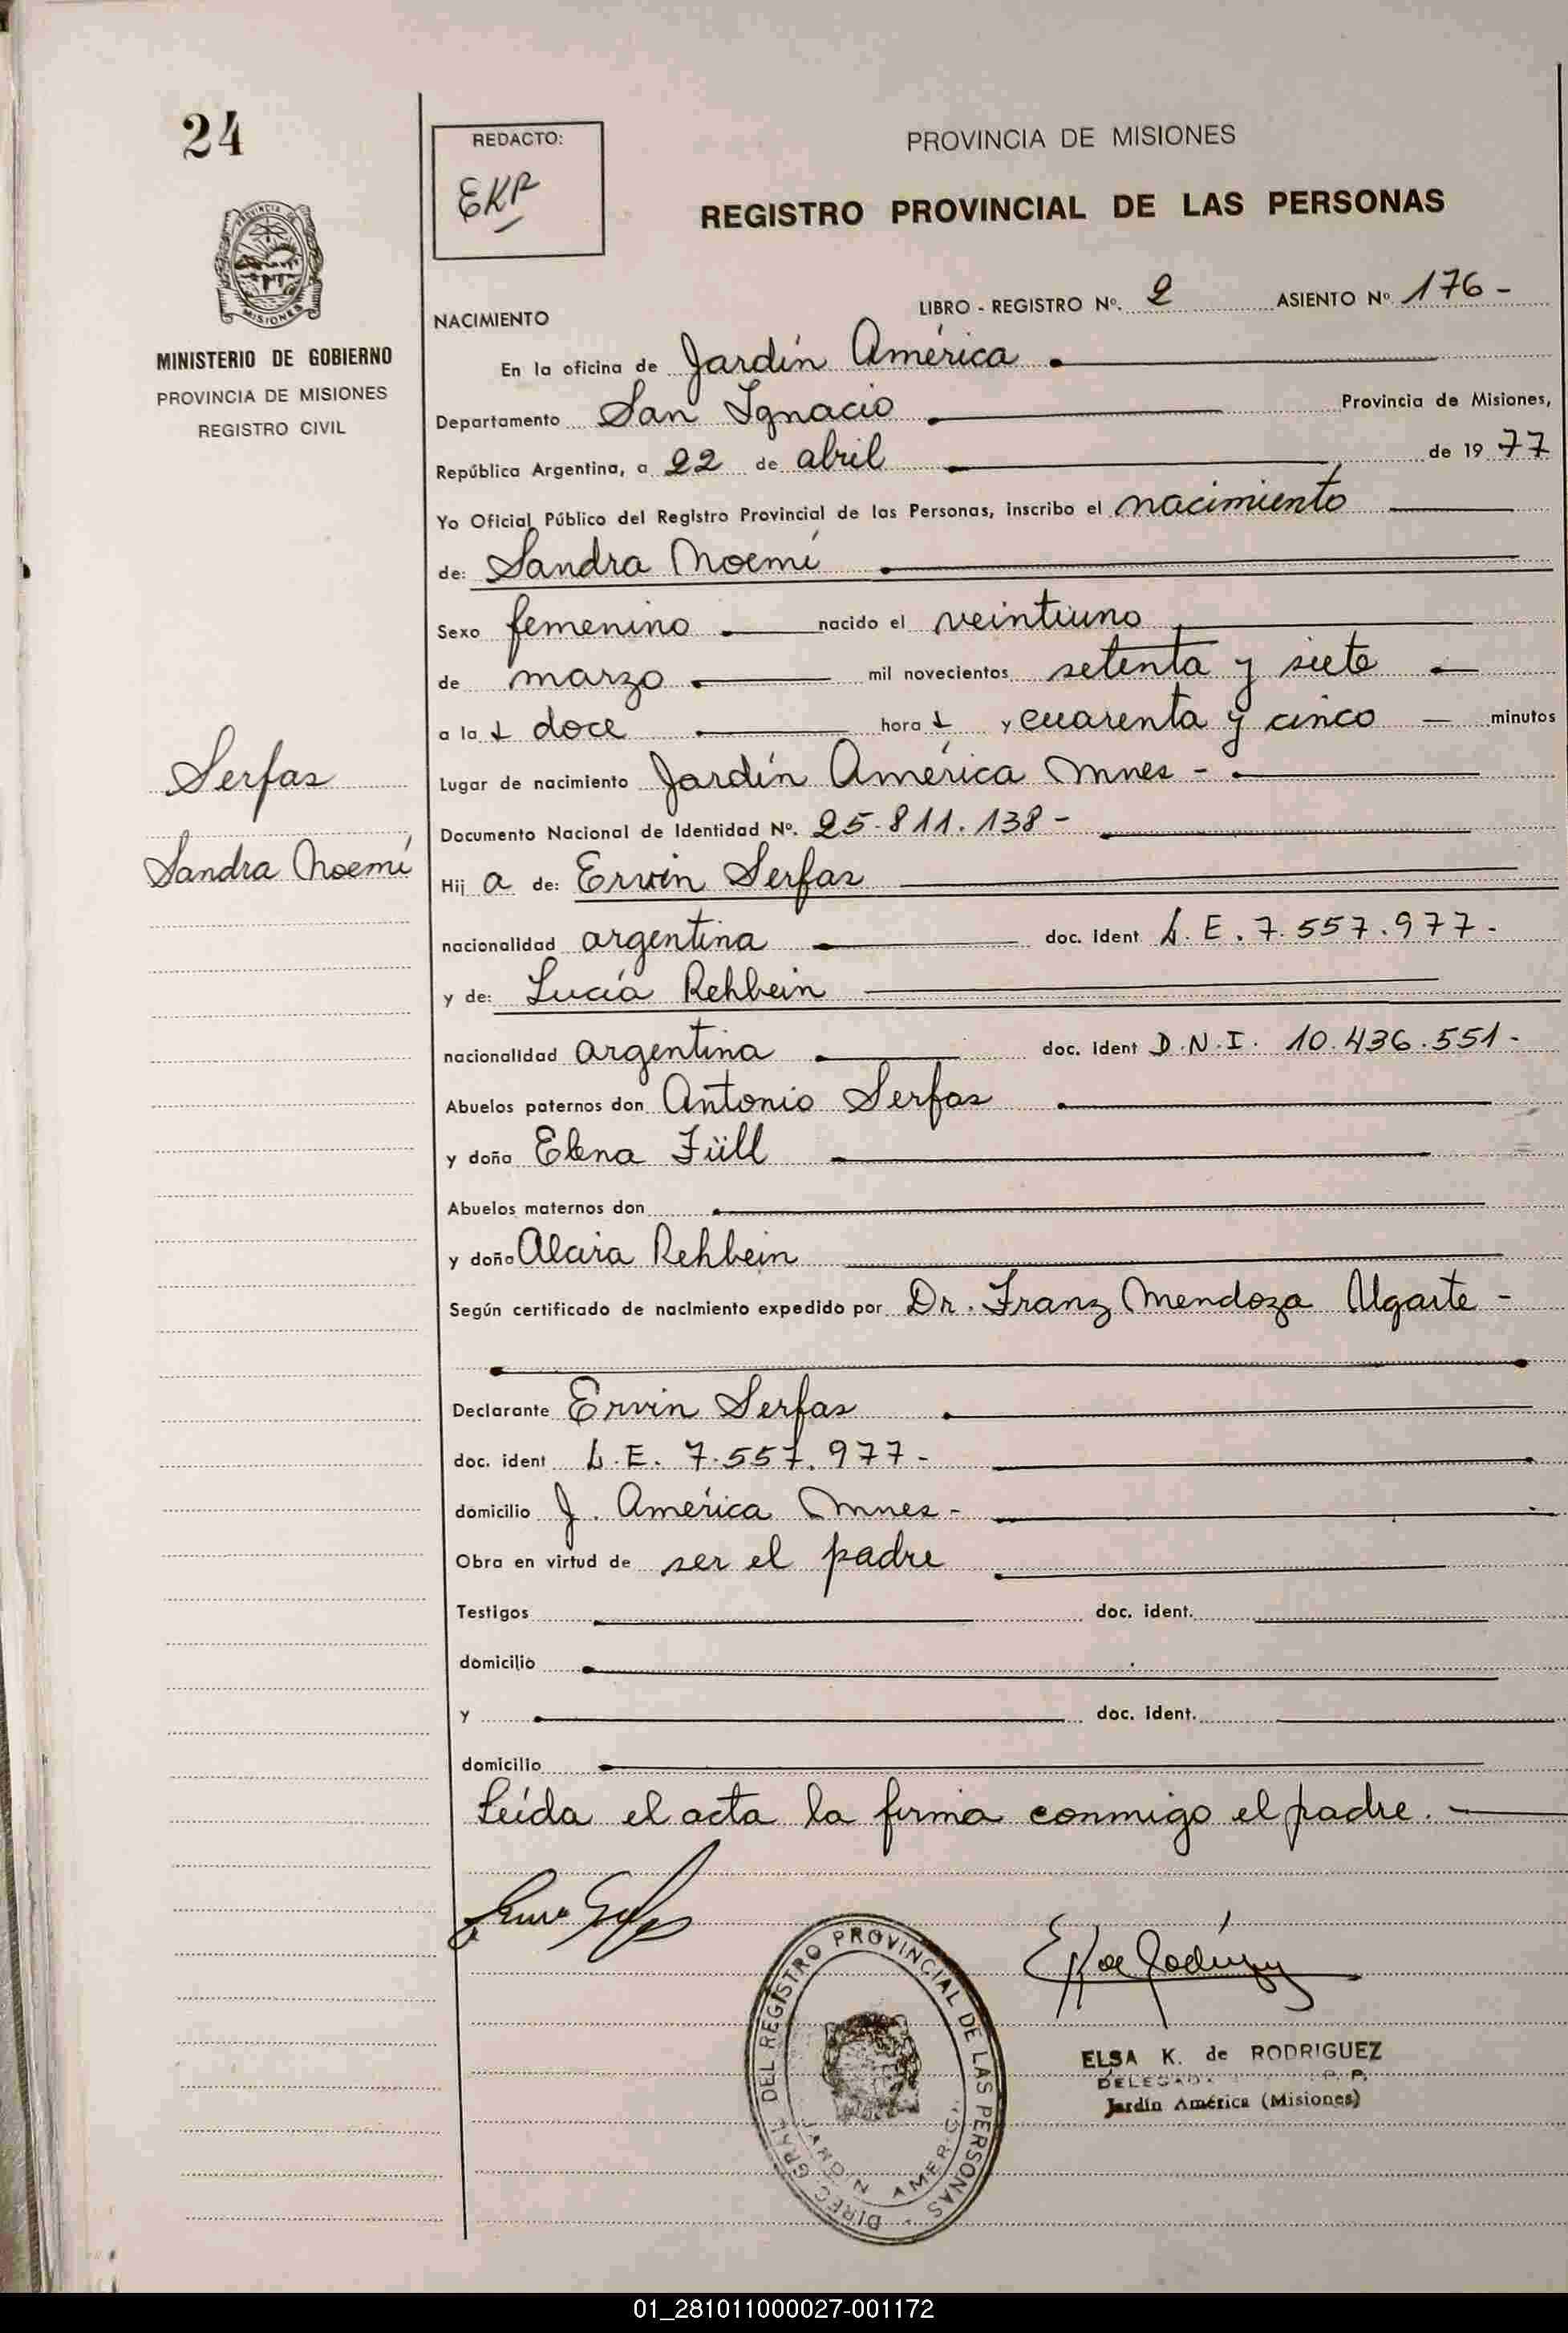 24
REDACTO:
EKR
PROVINCIA DE MISIONES
REGISTRO PROVINCIAL DE LAS PERSONAS
PROVINCIA DE
MISIONES
MINISTERIO DE GOBIERNO
PROVINCIA DE MISIONES
REGISTRO CIVIL
LIBRO - REGISTRO Nº. 2 ASIENTO Nº 176 -
NACIMIENTO
En la oficina de Jardín América
Departamento San Ignacio Provincia de Misiones,
República Argentina, a 22 de abril de 1977
Yo Oficial Público del Registro Provincial de las Personas, inscribo el nacimiento
de: Sandra Noemí
Sexo femenino nacido el veintiuno
de marzo mil novecientos setenta y siete
a la s doce hora s y cuarenta y cinco minutos
Serfas
Sandra Noemí
Lugar de nacimiento Jardín América Mnes -
Documento Nacional de Identidad Nº. 25.811.138 -
Hij a de: Ervin Serfas
nacionalidad argentina doc. ident L.E. 7.557.977 -
y de: Lucía Rehbein
nacionalidad argentina doc. ident D.N.I. 10.436.551 -
Abuelos paternos don Antonio Serfas
y doña Elena Füll
Abuelos maternos don
y doña Rehbein
Según certificado de nacimiento expedido por Dr. Franz Mendoza Ugarte -
Declarante Ervin Serfas
doc. ident L.E. 7.557.977 -
domicilio J. América Mnes -
Obra en virtud de ser el padre
Testigos doc. ident.
domicilio
y doc. ident.
domicilio
Leída el acta la firma conmigo el padre.
DIREC. GRAL. DEL REGISTRO PROVINCIAL DE LAS PERSONAS
ELSA K. de RODRIGUEZ
Jardín América (Misiones)
01_281011000027-001172